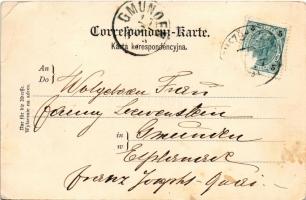 GMUNDEN
Correspondenz-Karte.
Karta korespondencyjna.
An
Do
Wolgeboren Frau
Fanny Loewenstein
in
w
Gmunden
Esplanade
Franz Josephs-Quai
Nur für die Adresse.
Wyłącznie na adres.
5
5